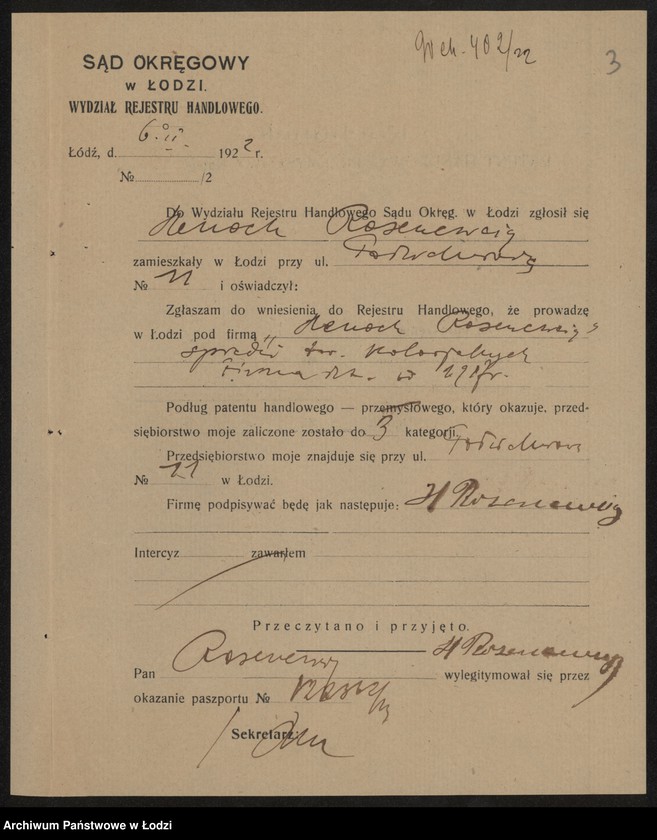 3
SĄD OKRĘGOWY
W ŁODZI.
WYDZIAŁ REJESTRU HANDLOWEGO.
Łódź, d. 6. II. 1922 r.
№ /2
Do Wydziału Rejestru Handlowego Sądu Okręg. w Łodzi zgłosił się
Henoch Rosencwajg
zamieszkały w Łodzi przy ul.
№ 11 i oświadczył:
Zgłaszam do wniesienia do Rejestru Handlowego, że prowadzę
w Łodzi pod firmą „Henoch Rosencwajg"
sprzedaż tow. kolonjalnych
Firma istn. od 1917 r.
Podług patentu handlowego — przemysłowego, który okazuje, przed-
siębiorstwo moje zaliczone zostało do 3 kategorji.
Przedsiębiorstwo moje znajduje się przy ul.
№ 11 w Łodzi.
Firmę podpisywać będę jak następuje: H Rosencwajg
Intercyz zawarłem
Przeczytano i przyjęto.
H Rosencwajg
Pan Rosencwajg wylegitymował się przez
okazanie paszportu №
Sekretarz:
Archiwum Państwowe w Łodzi